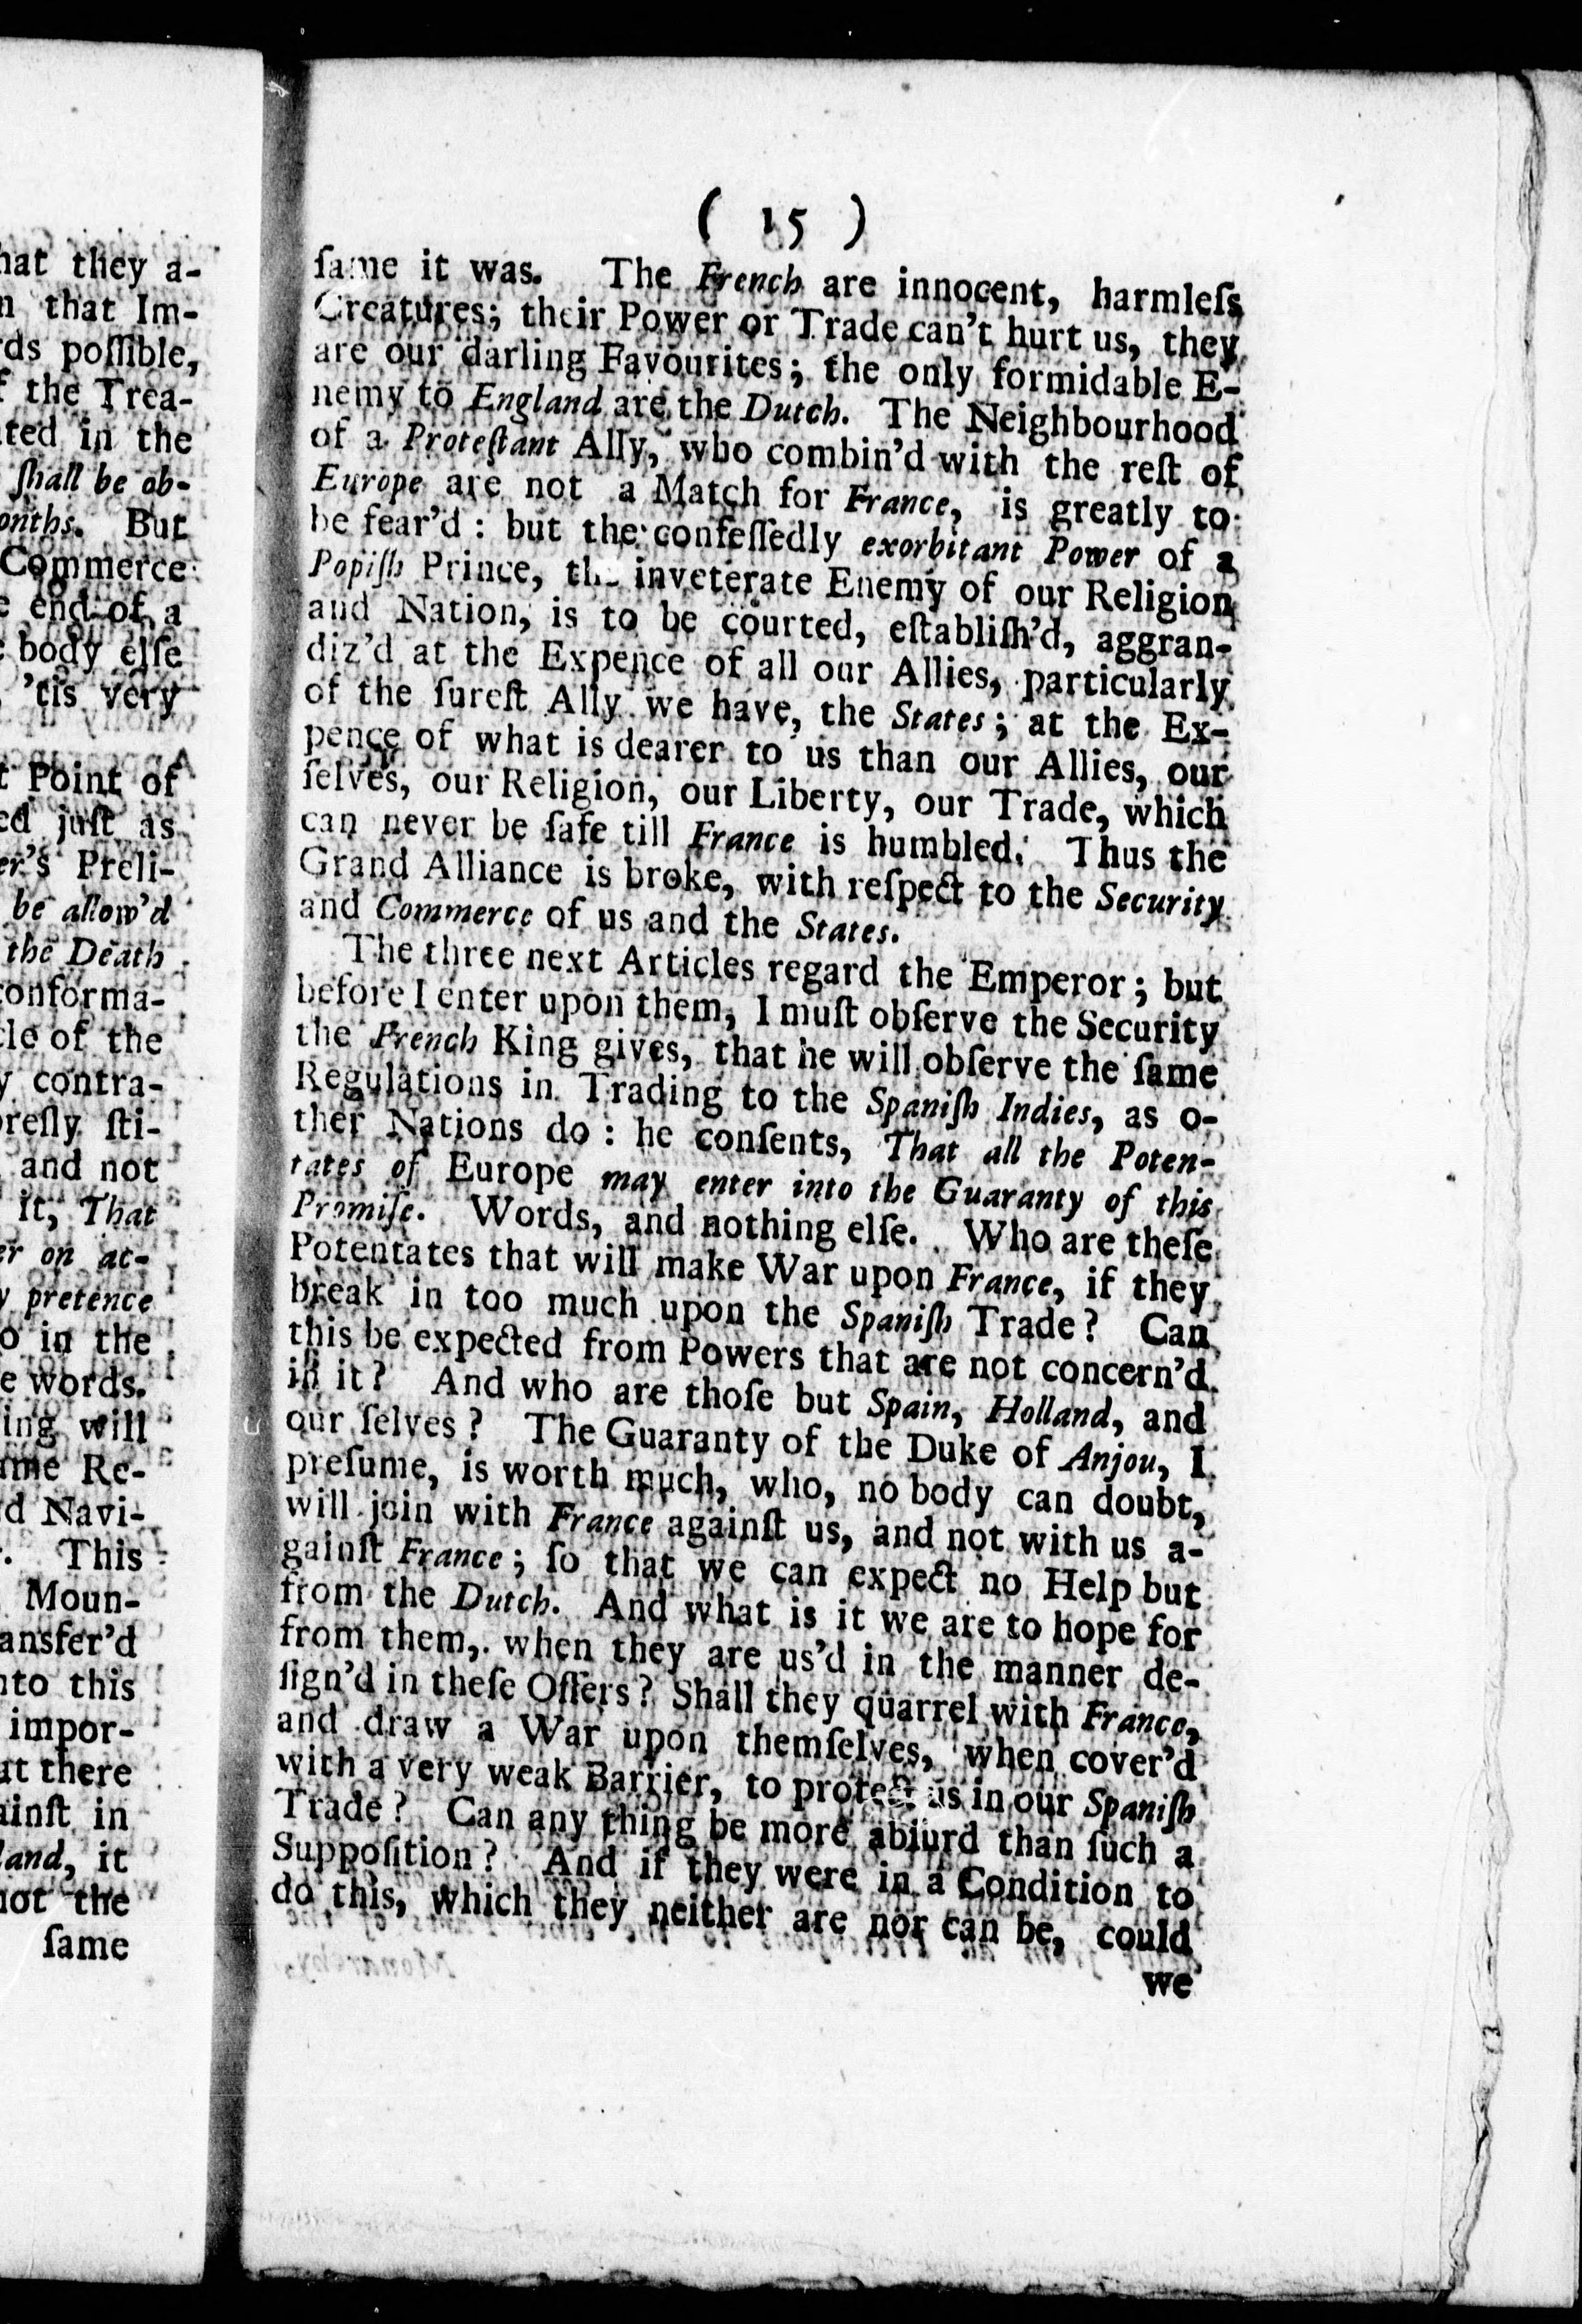 hat they a-
n that Im-
ds possible,
f the Trea-
ted in the
ſhall be ob-
onths. But
Commerce
e end of a
body elſe
'tis very
t Point of
ed juſt as
er's Preli-
be allow'd
the Death
conforma-
cle of the
y contra-
preſly ſti-
and not
it, That
er on ac-
y pretence
o in the
e words.
ing will
ame Re-
d Navi-
. This
Moun-
ansfer'd
nto this
impor-
at there
ainſt in
land, it
not the
ſame
( 15 )
ſame it was. The French are innocent, harmleſs
Creatures; their Power or Trade can't hurt us, they
are our darling Favourites; the only formidable E-
nemy to England are the Dutch. The Neighbourhood
of a Proteſtant Ally, who combin'd with the reſt of
Europe are not a Match for France, is greatly to
be fear'd: but the confeſſedly exorbitant Power of a
Popiſh Prince, the inveterate Enemy of our Religion
and Nation, is to be courted, eſtabliſh'd, aggran-
diz'd at the Expence of all our Allies, particularly
of the ſureſt Ally we have, the States; at the Ex-
pence of what is dearer to us than our Allies, our
ſelves, our Religion, our Liberty, our Trade, which
can never be ſafe till France is humbled. Thus the
Grand Alliance is broke, with reſpect to the Security
and Commerce of us and the States.
The three next Articles regard the Emperor; but
before I enter upon them, I muſt obſerve the Security
the French King gives, that he will obſerve the ſame
Regulations in Trading to the Spaniſh Indies, as o-
ther Nations do: he conſents, That all the Poten-
tates of Europe may enter into the Guaranty of this
Promiſe. Words, and nothing elſe. Who are theſe
Potentates that will make War upon France, if they
break in too much upon the Spaniſh Trade? Can
this be expected from Powers that are not concern'd
in it? And who are thoſe but Spain, Holland, and
our ſelves? The Guaranty of the Duke of Anjou, I
preſume, is worth much, who, no body can doubt,
will join with France againſt us, and not with us a-
gainſt France; ſo that we can expect no Help but
from the Dutch. And what is it we are to hope for
from them, when they are us'd in the manner de-
ſign'd in theſe Offers? Shall they quarrel with France,
and draw a War upon themſelves, when cover'd
with a very weak Barrier, to protect us in our Spaniſh
Trade? Can any thing be more abſurd than ſuch a
Suppoſition? And if they were in a Condition to
do this, which they neither are nor can be, could
we